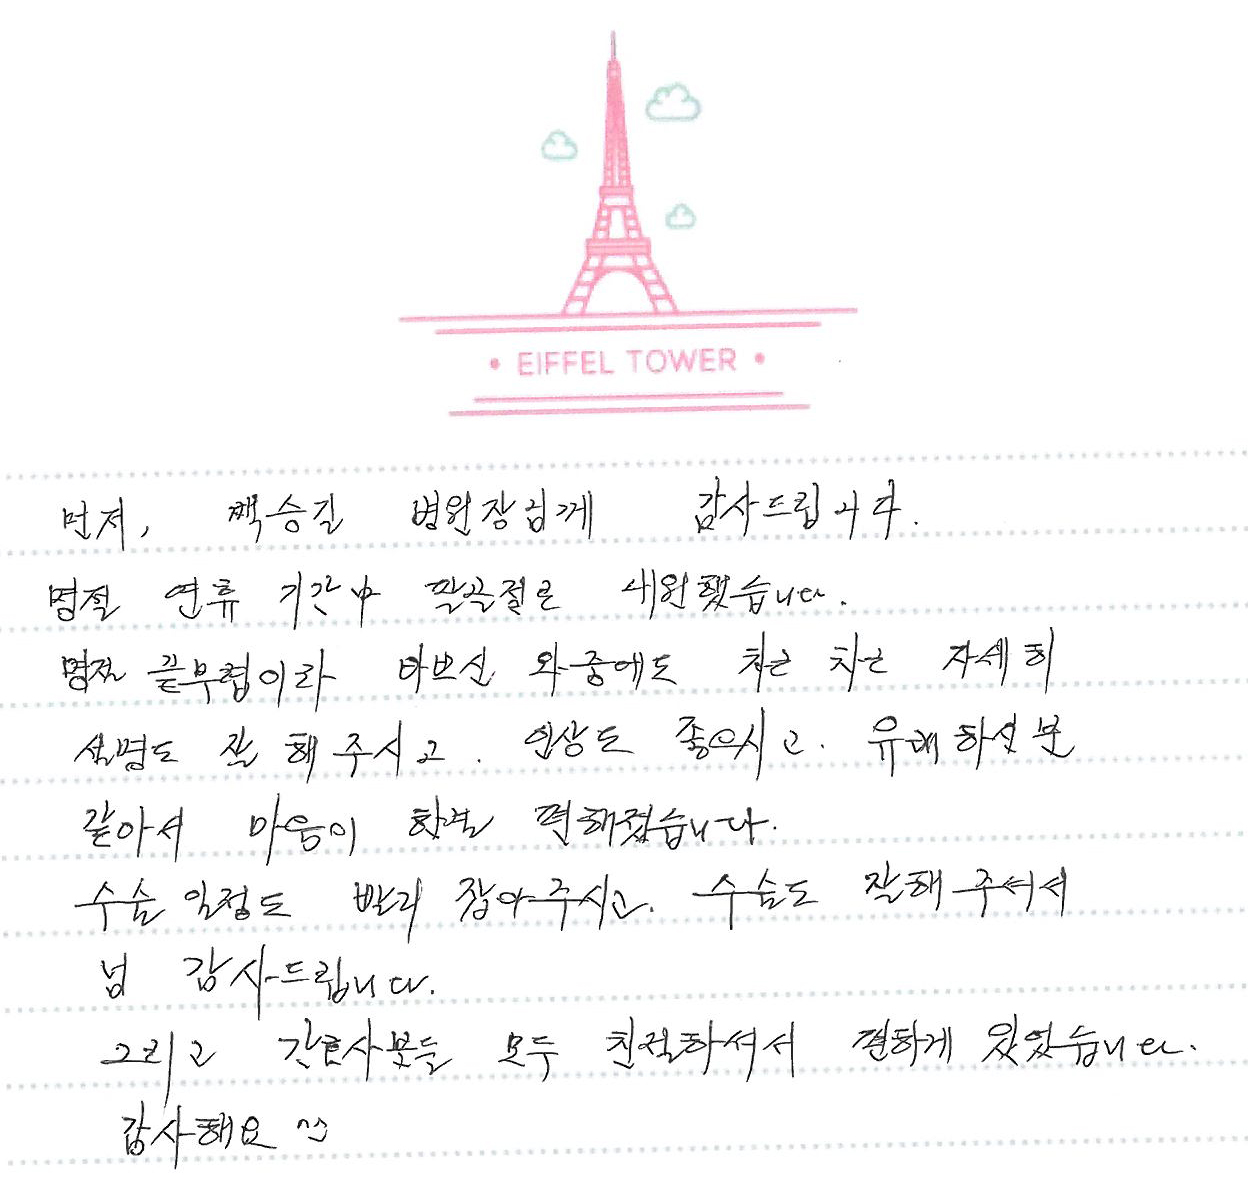 • EIFFEL TOWER •
먼저, 백승길 병원장님께 감사드립니다.
명절 연휴 기간中 팔골절로 내원했습니다.
명절 끝무렵이라 바쁘신 와중에도 차근 차근 자세히
설명도 잘 해 주시고. 인상도 좋으시고. 유쾌하신 분
같아서 마음이 한결 편해졌습니다.
수술 일정도 빨리 잡아주시고. 수술도 잘해 주셔서
넘 감사드립니다.
그리고 간호사분들 모두 친절하셔서 편하게 있었습니다.
감사해요 ^^